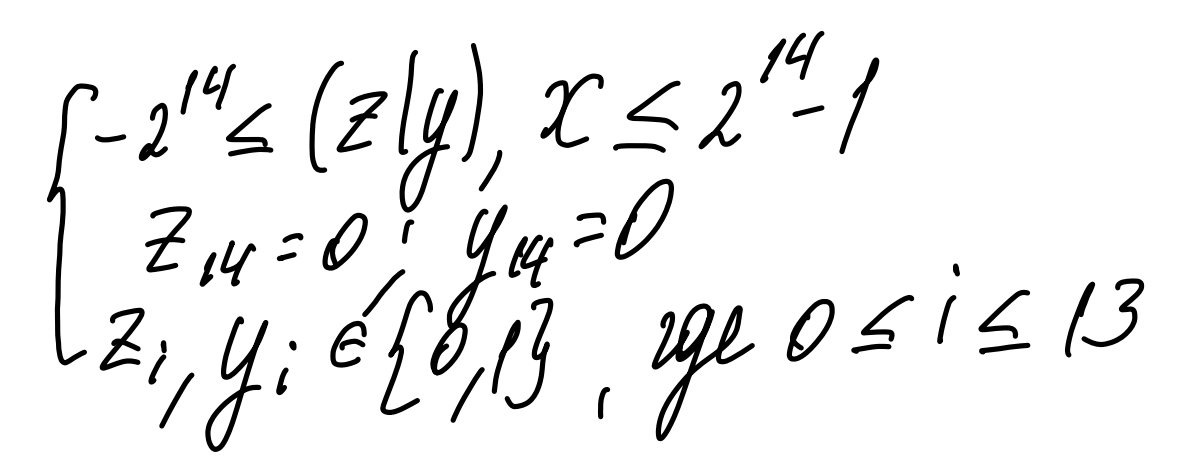 { -2^14 ≤ (z|y), x ≤ 2^14 - 1
z_14 = 0, y_14 = 0
z_i, y_i ∈ {0,1}, где 0 ≤ i ≤ 13